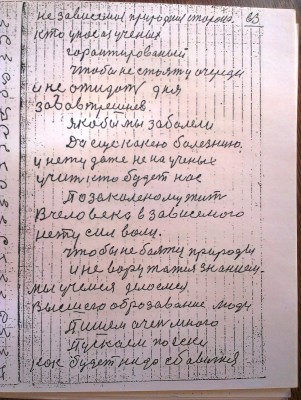 не зависемой природны стороне. 83
кто у нос из ученых
горантированый
чтобы не стоять у очереди
и не ожидать дня
зовавтрешнев.
якобы мы заболели
Да с ускакаю болезнию.
и нету даже не на ученых
учит кто будет нас
По закаленому жит
В человека в зависемого
нету сил воли.
чтобы не баятц природы
и не воружатся знанием.
мы учемся делоемся
высшего оброзавание люди
Пишем очен много
Пускаем по
как будет надо сбавится